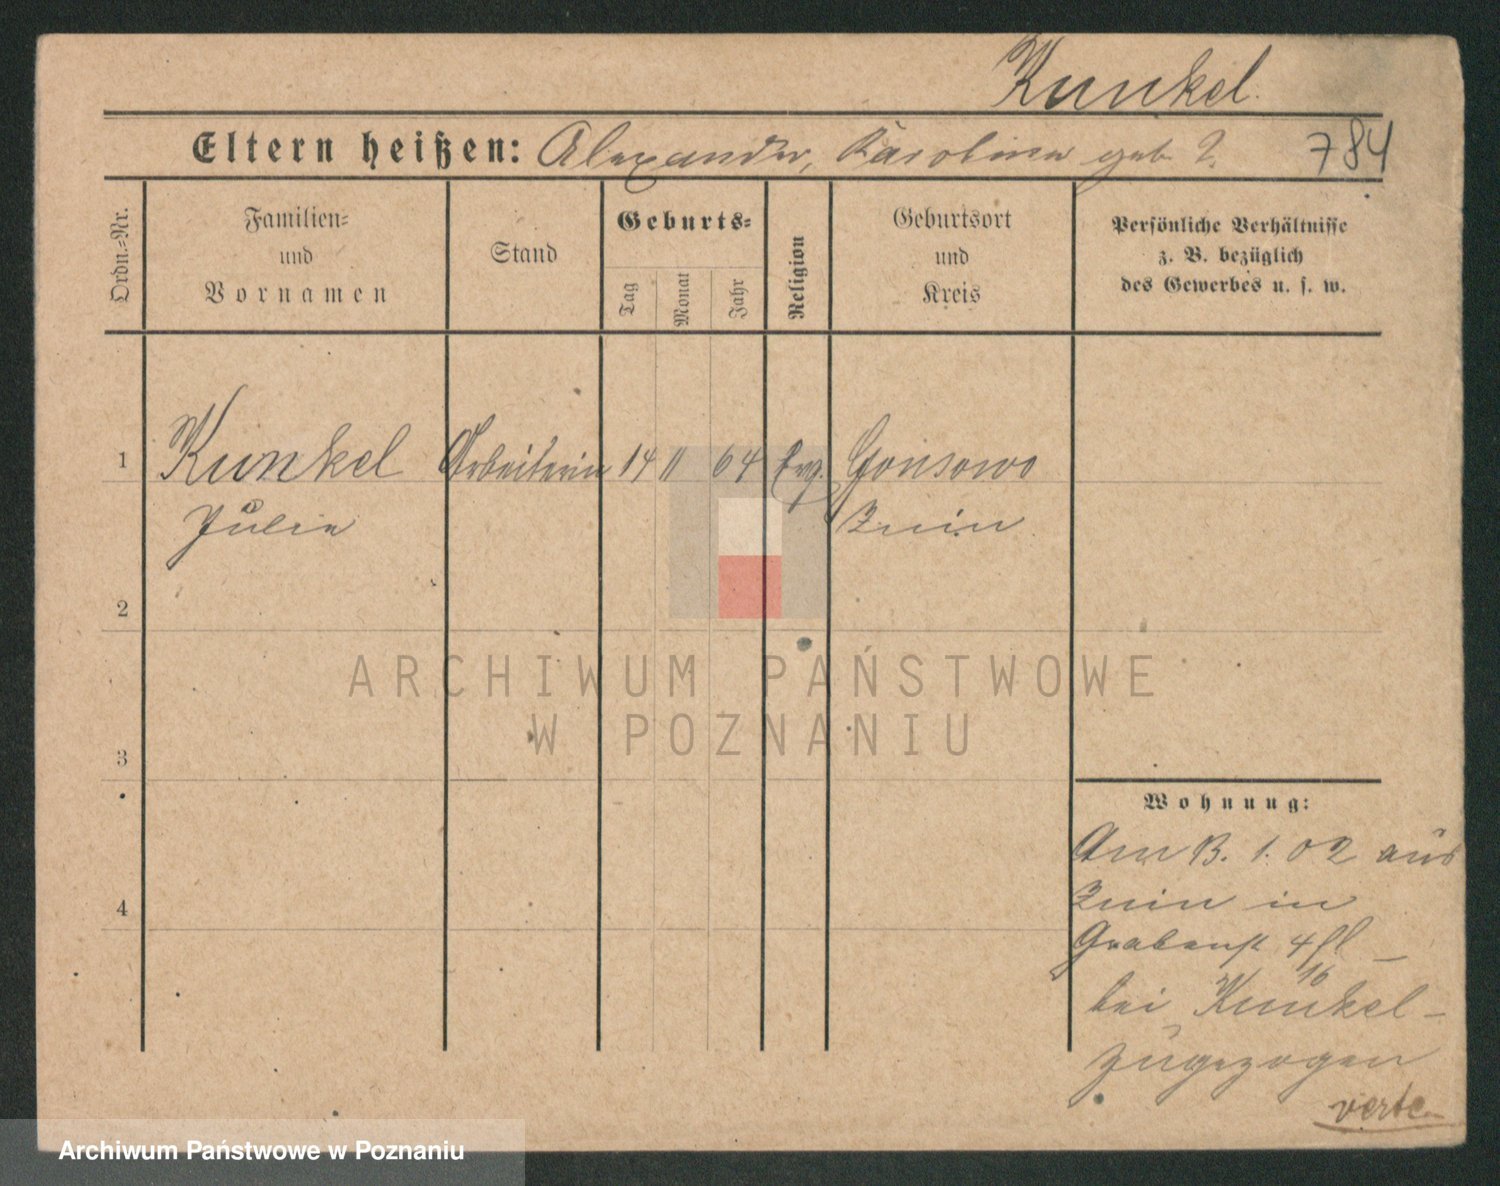 Kunkel
Eltern heißen: Alexander, Karolina geb ?.
784
Ordn.=Nr.
Familien=
und
Vornamen
Stand
Geburts=
Tag
Monat
Jahr
Religion
Geburtsort
und
Kreis
Persönliche Verhältnisse
z. B. bezüglich
des Gewerbes u. s. w.
1
Kunkel Arbeiterin 14 11 64 Evg. Gonsawo
Julie Znin
2
ARCHIWUM PAŃSTWOWE
W POZNANIU
3
Wohnung:
Am 13. 1. 02 aus
Znin in
4
Grabenst 4
16
bei Kunkel
zugezogen
verte
Archiwum Państwowe w Poznaniu